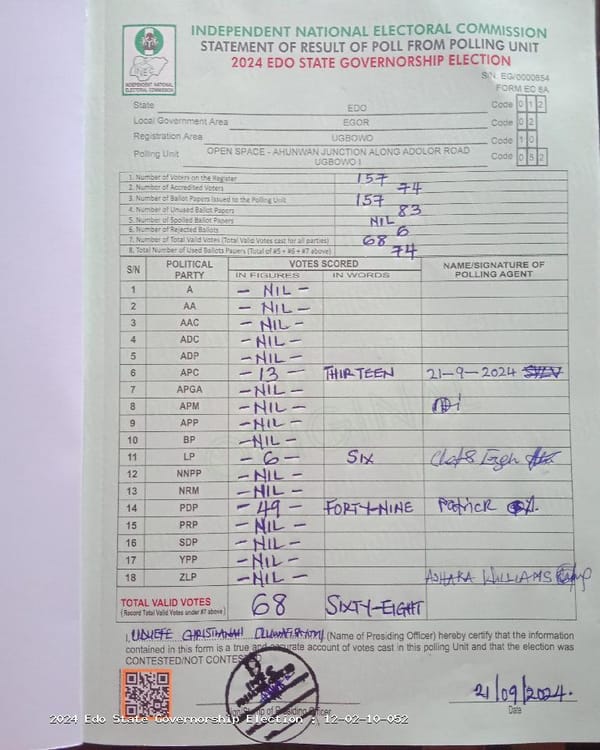 INDEPENDENT NATIONAL ELECTORAL COMMISSION
STATEMENT OF RESULT OF POLL FROM POLLING UNIT
2024 EDO STATE GOVERNORSHIP ELECTION
S/N: EG/0000854
FORM EC 8A
INDEPENDENT NATIONAL ELECTORAL COMMISSION
State EDO Code 0 1 2
Local Government Area EGOR Code 0 2
Registration Area UGBOWO Code 1 0
Polling Unit OPEN SPACE - AHUNWAN JUNCTION ALONG ADOLOR ROAD UGBOWO I Code 0 5 2
1. Number of Voters on the Register 157
2. Number of Accredited Voters 74
3. Number of Ballot Papers Issued to the Polling Unit 157
4. Number of Unused Ballot Papers 83
5. Number of Spoiled Ballot Papers NIL
6. Number of Rejected Ballots 6
7. Number of Total Valid Votes (Total Valid Votes cast for all parties) 68
8. Total Number of Used Ballots Papers (Total of #5 + #6 + #7 above) 74
S/N POLITICAL PARTY VOTES SCORED NAME/SIGNATURE OF POLLING AGENT
IN FIGURES IN WORDS
1 A - NIL -
2 AA - NIL -
3 AAC - NIL -
4 ADC - NIL -
5 ADP - NIL -
6 APC - 13 - THIRTEEN 21-9-2024
7 APGA - NIL -
8 APM - NIL -
9 APP - NIL -
10 BP - NIL -
11 LP - 6 - SIX
12 NNPP - NIL -
13 NRM - NIL -
14 PDP - 49 - FORTY-NINE Patrick
15 PRP - NIL -
16 SDP - NIL -
17 YPP - NIL -
18 ZLP - NIL - WILLIAMS
TOTAL VALID VOTES 68 SIXTY-EIGHT
(Record Total Valid Votes under #7 above)
I, CHRISTIANAH (Name of Presiding Officer) hereby certify that the information
contained in this form is a true and accurate account of votes cast in this polling Unit and that the election was
CONTESTED/NOT CONTESTED
21/09/2024.
Officer Date
2024 Edo State Governorship Election : 12-02-10-052